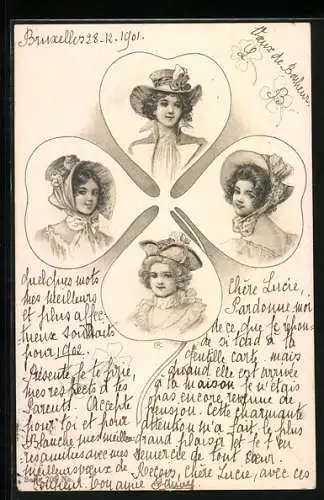 Bruxelles 28-12.1901.
Vœux de Bonheur.
L
B
Quelques mots
mes meilleurs
et plus affec-
tueux souhaits
pour 1902.
Présente, je te prie,
mes respects à tes
Parents. Accepte
pour toi et pour
Blanche, mes meilleu-
res amitiés avec mes
meilleurs vœux de
Bonne année
Chère Lucie,
Pardonne moi
de ce que je répon-
de si tard à ta
gentille carte, mais
quand elle est arrivée
à la maison je n'étais
pas encore revenue de
pension. Cette charmante
attention m'a fait le plus
grand plaisir et je t'en
remercie de tout cœur.
Reçois, chère Lucie, avec ces